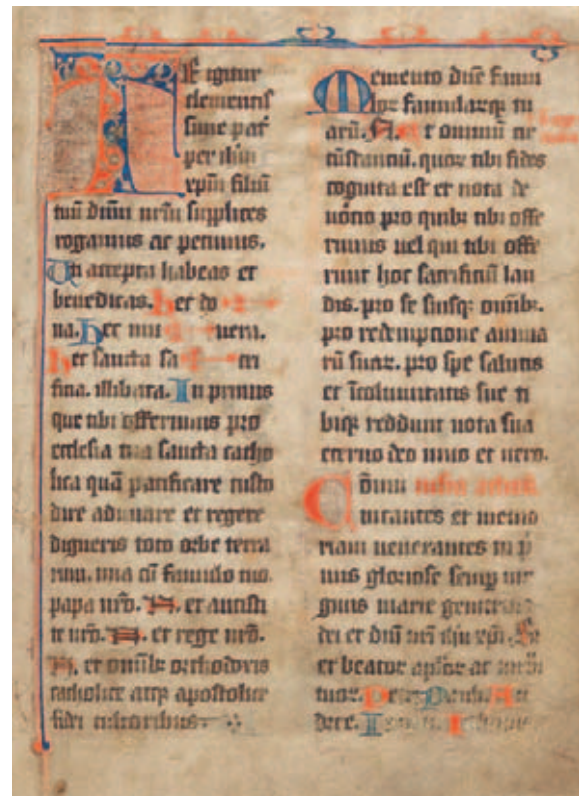 TE igitur
clementis
sime pat̄
per ihm̄
xpm̄ filiū
tuū dn̄m nr̄m supplices
rogamus ac petimus.
Uti accepta habeas et
benedicas. hec do
na. hec mu nera.
hec sancta sa cri
ficia. illibata. In primis
que tibi offerimus pro
ecclesia tua sancta catho
lica quā pacificare custo
dire adunare et regere
digneris toto orbe terra
rum. una cū famulo tuo.
papa nrō. N. et antisti
te nrō. N. et rege nrō.
N. et omībꝫ orthodoxis
catholice atqꝫ apostolice
fidei cultoribus.
Memento dn̄e famu
loꝝ famularūqꝫ tu
arū. N. et omniū cir
cūstanciū. quoꝝ tibi fides
cognita est et nota de
uōtio pro quibꝫ tibi offe
rimus uel qui tibi offe
runt hoc sacrificiū lau
dis. pro se suisqꝫ omībꝫ.
pro redemptione anima
rū suaꝝ. pro spe salutis
et īcolumitatis sue ti
biqꝫ reddunt uota sua
eterno deo uiuo et uero.
Cōmu
nicantes et memo
riam uenerantes in p̄
mis gloriose semꝑ uir
ginis marie genitricis
dei et dn̄i nr̄i ihu xp̄i. Set
et beatoꝝ aplōꝝ ac mr̄ti
 Petri Pauli An
dree.